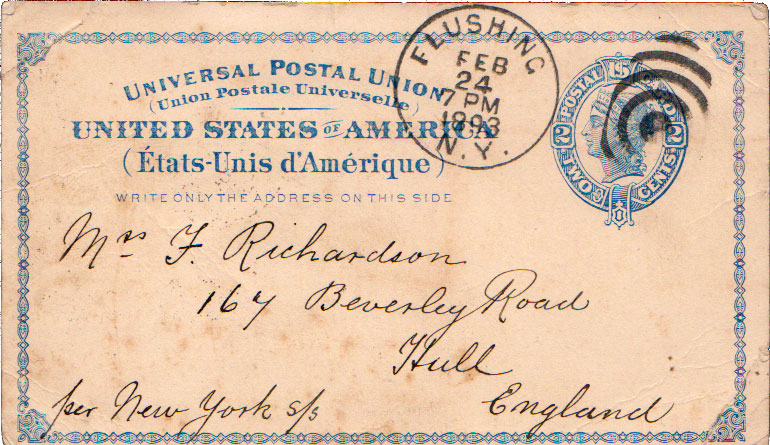 UNIVERSAL POSTAL UNION
(Union Postale Universelle)
UNITED STATES OF AMERICA
(États-Unis d'Amérique)
WRITE ONLY THE ADDRESS ON THIS SIDE
FLUSHING
FEB
24
7 PM
1893
N.Y.
POSTAL CARD
2 CENTS 2
Mrs F. Richardson
167 Beverley Road
Hull
England
per New York s/s